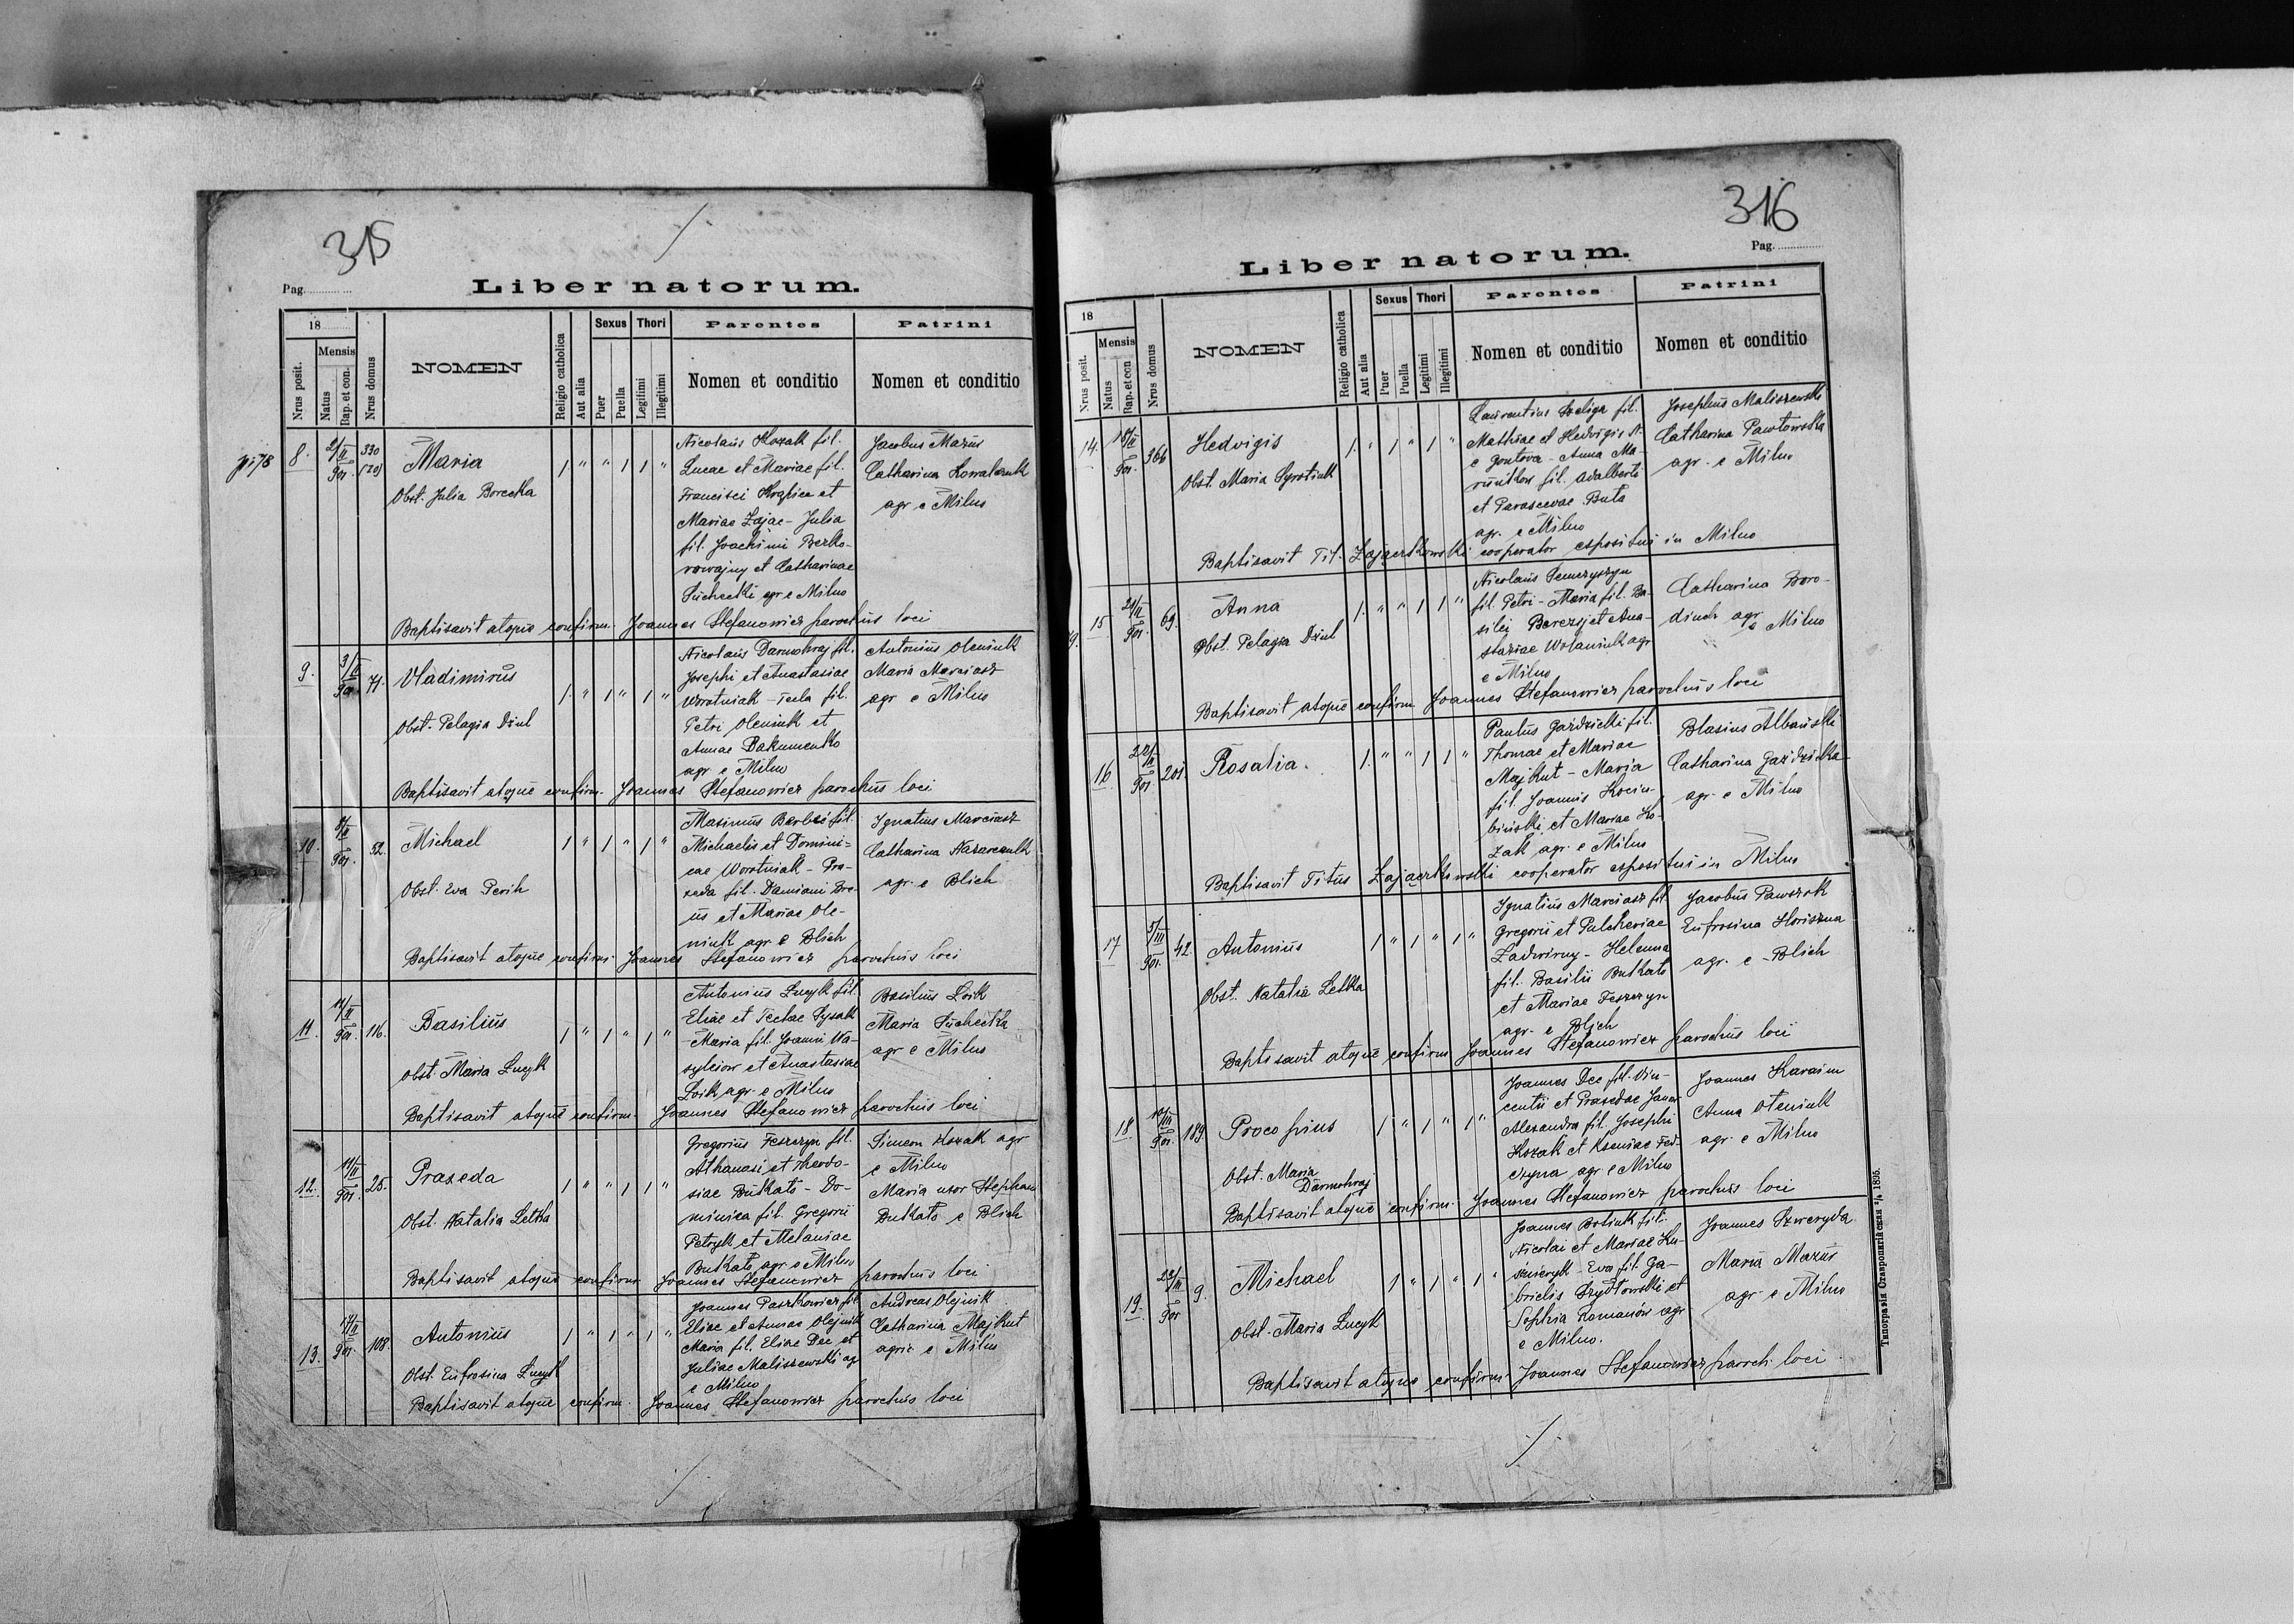 315
Pag.
Liber natorum.
18
Nrus posit.
Mensis
Natus
Bap. et con.
Nrus domus
NOMEN
Religio catholica
Aut alia
Sexus
Puer
Puella
Thori
Legitimi
Illegitimi
Parentes
Nomen et conditio
Patrini
Nomen et conditio
8. 2/II 901. 330 (20) Maria 1 " " 1 1 "
Obst. Julia Borecka
Nicolaus Kozak fil.
Lucae et Mariae fil.
Francisci Krąpiec et
Mariae Zając - Julia
fil. Joachimi Bezko-
rowajny et Catharinae
Suchecki agr e Milno
Jacobus Mazur
Catharina Kowalczuk
agr e Milno
Baptisavit atque confirm. Joannes Stefanowicz parochus loci
9. 3/II 901. 71. Vladimirus 1 " 1 " 1 "
Obst. Pelagia Dziul
Nicolaus Darmohraj fil.
Josephi et Anastasiae
Worotniak - Tecla fil.
Petri Oleniuk et
Annae Bakumenko
agr e Milno
Antonius Oleniuk
Maria Marciasz
agr e Milno
Baptisavit atque confirm. Joannes Stefanowicz parochus loci
10. 901. 52. Michael 1 " 1 " 1 "
Obst. Eva Perih
Maximus Berbeć fil.
Michaelis et Domini=
cae Worotniak - Pra-
xeda fil. Damiani Bre-
us et Mariae Ole-
niuk agr. e Blich
Ignatius Marciasz
Catharina Nazarczuk
agr. e Blich
Baptisavit atque confirm. Joannes Stefanowicz parochus loci
11. 11/II 901. 116. Basilius 1 " 1 " 1 "
Obst. Maria Łucyk
Antonius Łucyk fil.
Eliae et Teclae Łysak
- Maria fil. Joanni Wa-
sylciow et Anastasiae
Łoik agr. e Milno
Basilius Łoik
Maria Suchecka
agr e Milno
Baptisavit atque confirm. Joannes Stefanowicz parochus loci
12. 11/II 901. 25. Praxeda 1 " " 1 1 "
Obst. Natalia Letka
Gregorius Feszczyn fil.
Athanasi et Theodo-
siae Butkało - Do-
minica fil. Gregorii
Petryk et Melaniae
Butkało agr. e Milno
Simeon Kozak agr
e Milno
Maria uxor Stephani
Butkało e Blich
Baptisavit atque confirm Joannes Stefanowicz parochus loci
13. 17/II 901. 108. Antonius 1 " 1 " 1 "
Obst. Eufrosina Łucyk
Joannes Paszkowicz fil
Eliae et Annae Olejnik
Maria fil. Eliae Dec et
Juliae Maliszewski agr
e Milno
Andreas Olejnik
Catharina Majkut
agric e Milno
Baptisavit atque confirm. Joannes Stefanowicz parochus loci
316
Pag.
Liber natorum.
18
Nrus posit.
Mensis
Natus
Bap. et con
Nrus domus
NOMEN
Religio catholica
Aut alia
Sexus
Puer
Puella
Thori
Legitimi
Illegitimi
Parentes
Nomen et conditio
Patrini
Nomen et conditio
14. 18/II 901. 366 Hedvigis 1. " 1 " 1 "
Obst. Maria Syrotiuk
Laurentius Szeliga fil.
Mathiae et Hedvigis
e Gontova - Anna Ma-
fil. Adalberti
et Parascevae Buta
agr. e Milno
Josephus Maliszewski
Catharina Pawłowska
agr. e Milno
Baptisavit Tit. Zajączkowski cooperator expositus in Milno
15 901. 69. Anna 1. " " 1 1 "
Obst. Pelagia Dziul
Nicolaus Demczyszyn
fil. Petri - Maria fil. Ba-
silii Berezuj et Ana-
staziae Wołaniuk agr
e Milno
Catharina Boro-
diuch agr.
e Milno
Baptisavit atque confirm Joannes Stefanowicz parochus loci
16 22/II 901. 201 Rosalia. 1. " " 1 1 "
Paulus Gazdzicki fil.
Thomae et Mariae
Majkut - Maria
fil. Joannis Kociu-
binski et Mariae Ko-
zak agr. e Milno
Blasius Albański
Catharina Gazdzicka
agr. e Milno
Baptisavit Titus Zajączkowski cooperator expositus in Milno
17 5/III 901. 42. Antonius 1 " 1 " 1 "
Obst. Natalia Letka
Ignatius Marciasz fil
Gregorii et Pulcheriae
Zadwirny - Helenna
fil. Basilii Butkało
et Mariae Feszczyn
agr. e Blich
Jacobus Pawszok
Eufrosina Horiszna
agr. e Blich
Baptisavit atque confirm Joannes Stefanowicz parochus loci
18 901. 189. Procopius 1 " 1 " 1 "
Obst. Maria
Darmohraj
Joannes Dec fil. Vin-
centii et Praxedae Janas
Alexandra fil. Josephi
Kozak et Kseniae Fed-
czyna agr e Milno
Joannes Karaim
Anna Oleniuk
agr. e Milno
Baptisavit atque confirm. Joannes Stefanowicz parochus loci
19. 901 9. Michael 1 " 1 " 1 "
Obst. Maria Łucyk
Joannes Botiuk fil.
Nicolai et Mariae Ku-
śnieryk - Eva fil. Ga-
brielis Szydłowski et
Sophia Romanów agr
e Milno.
Joannes Szweryda
Maria Mazur
agr. e Milno
Baptisavit atque confirm. Joannes Stefanowicz paroch. loci